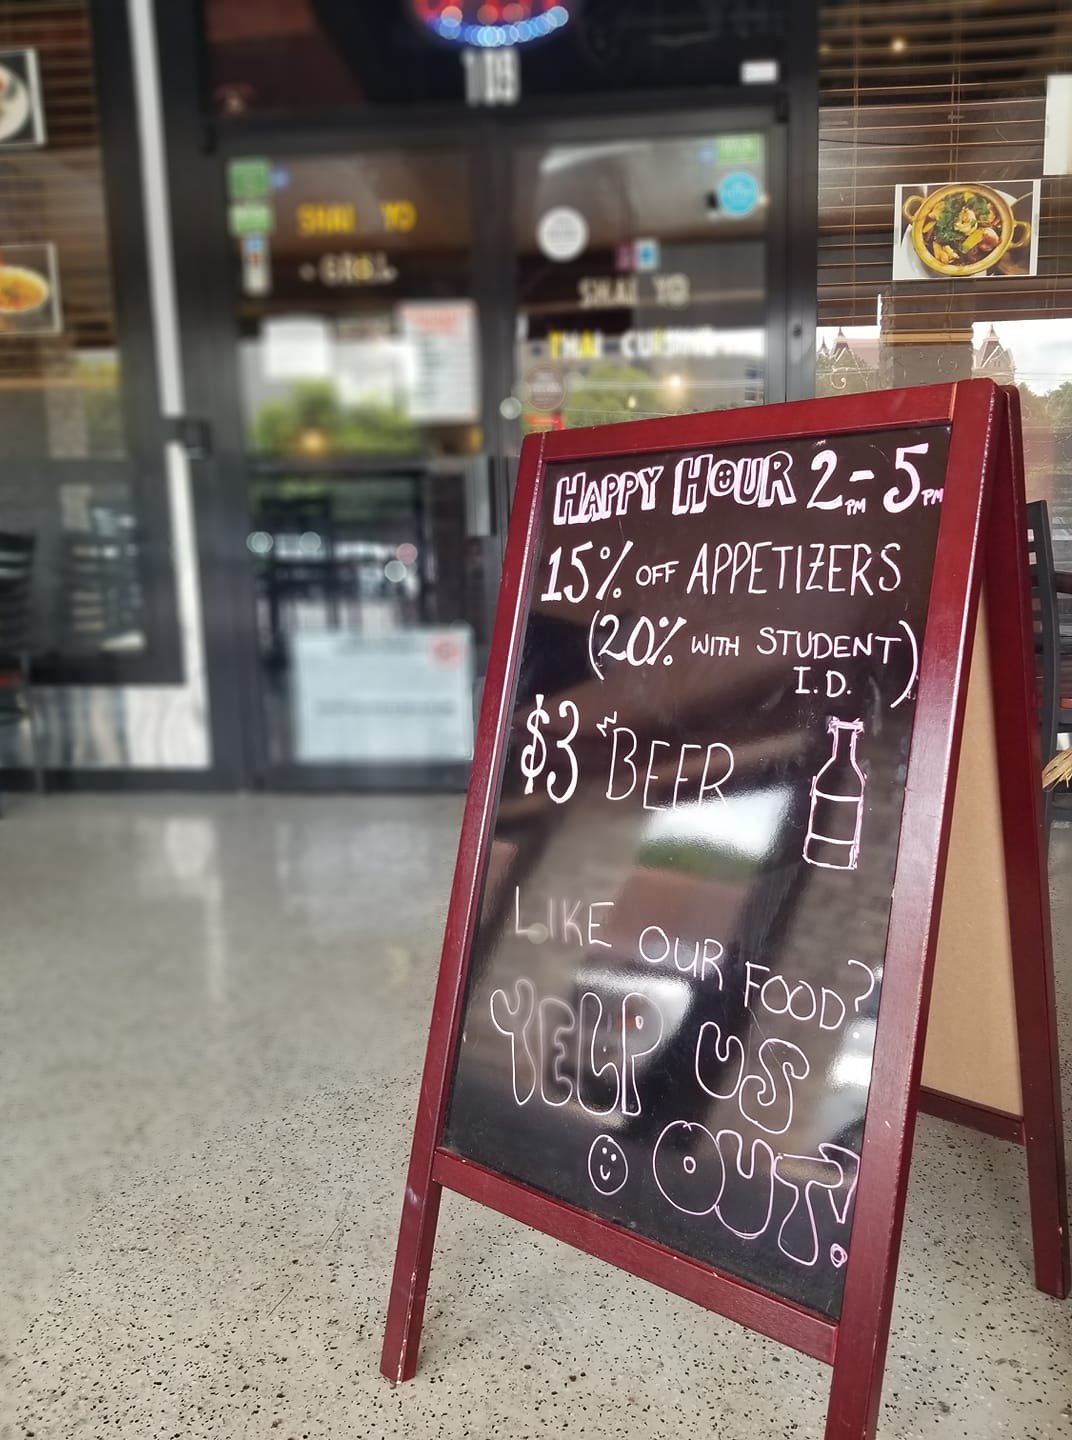 109
SHAI YO
GRILL
SHAI YO
THAI CUISINE
HAPPY HOUR 2PM - 5PM
15% OFF APPETIZERS
(20% WITH STUDENT
I.D.)
$3 BEER
LIKE OUR FOOD?
YELP US
OUT!